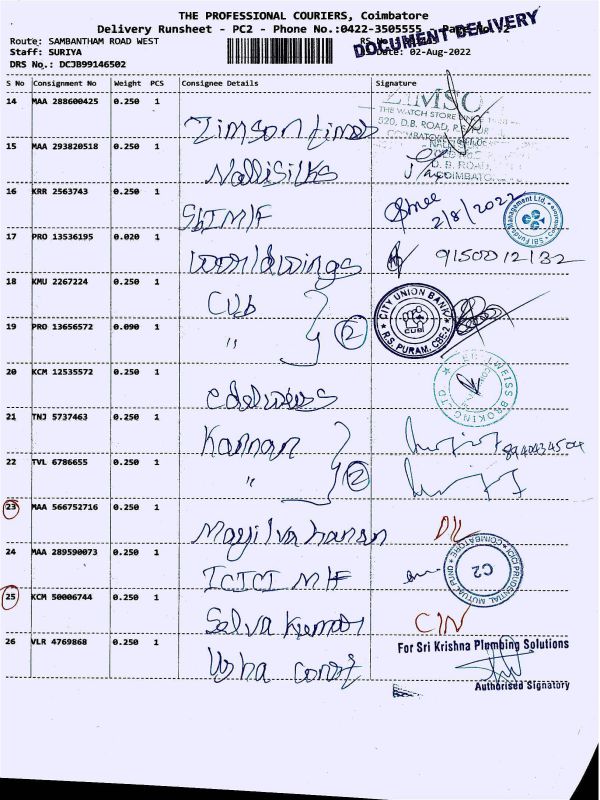 THE PROFESSIONAL COURIERS, Coimbatore
Delivery Runsheet - PC2 - Phone No.:0422-3505555
DOCUMENT DELIVERY
Route: SAMBANTHAM ROAD WEST
Staff: SURIYA
Date: 02-Aug-2022
DRS No.: DCJB99146502
S No Consignment No Weight PCS Consignee Details Signature
14 MAA 288600425 0.250 1
Zimson times
ZIMSO
THE WATCH STORE
520, D.B. ROAD,
15 MAA 293820518 0.250 1
Nallisilks
D. B. ROAD,
COIMBATO
16 KRR 2563743 0.250 1
SbI M/F
2/8/2022
SBI Funds Management Ltd.
17 PRO 13536195 0.020 1
worldwings
9150012132
18 KMU 2267224 0.250 1
CUb
CITY UNION BANK
CUB
R.S. PURAM, CBE-2
19 PRO 13656572 0.090 1
"
2
20 KCM 12535572 0.250 1
edelwees
BROKING LTD
21 TNJ 5737463 0.250 1
Kannan
22 TVL 6786655 0.250 1
"
2
23 MAA 566752716 0.250 1
Mayilvahanan
DL
24 MAA 289590073 0.250 1
ICICI M/F
ICICI PRUDENTIAL MUTUAL FUND
COIMBATORE
C2
25 KCM 50006744 0.250 1
Selva kumar
26 VLR 4769868 0.250 1
Usha
For Sri Krishna Plumbing Solutions
Authorised Signatory